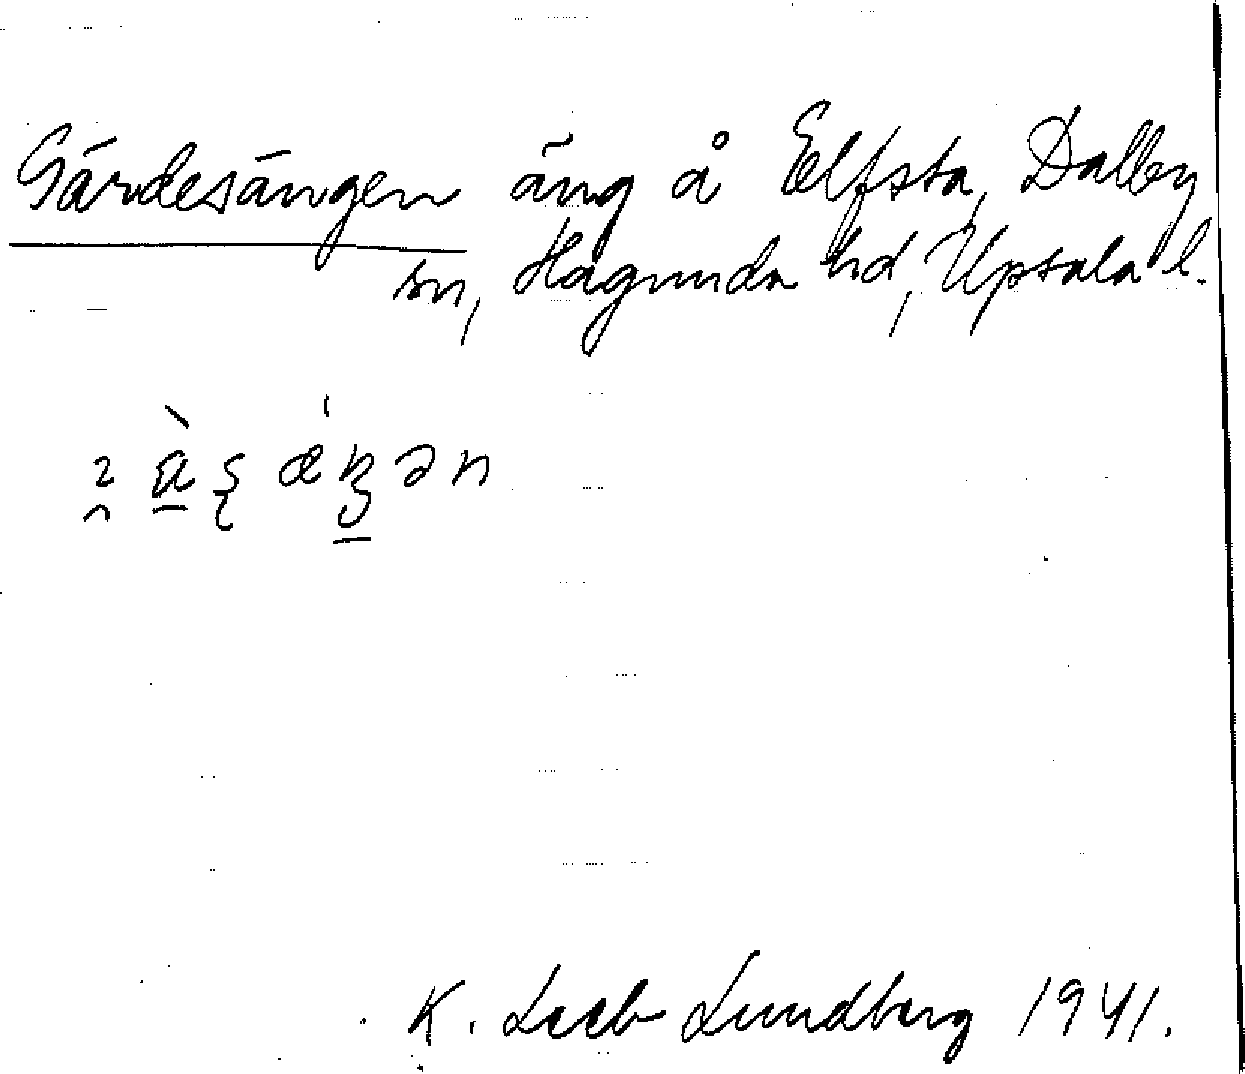 Gärdesängen äng å Elfsta, Dalby
sn, Hagunda hd, Upsala l.
K. Leeb Lundberg 1941.